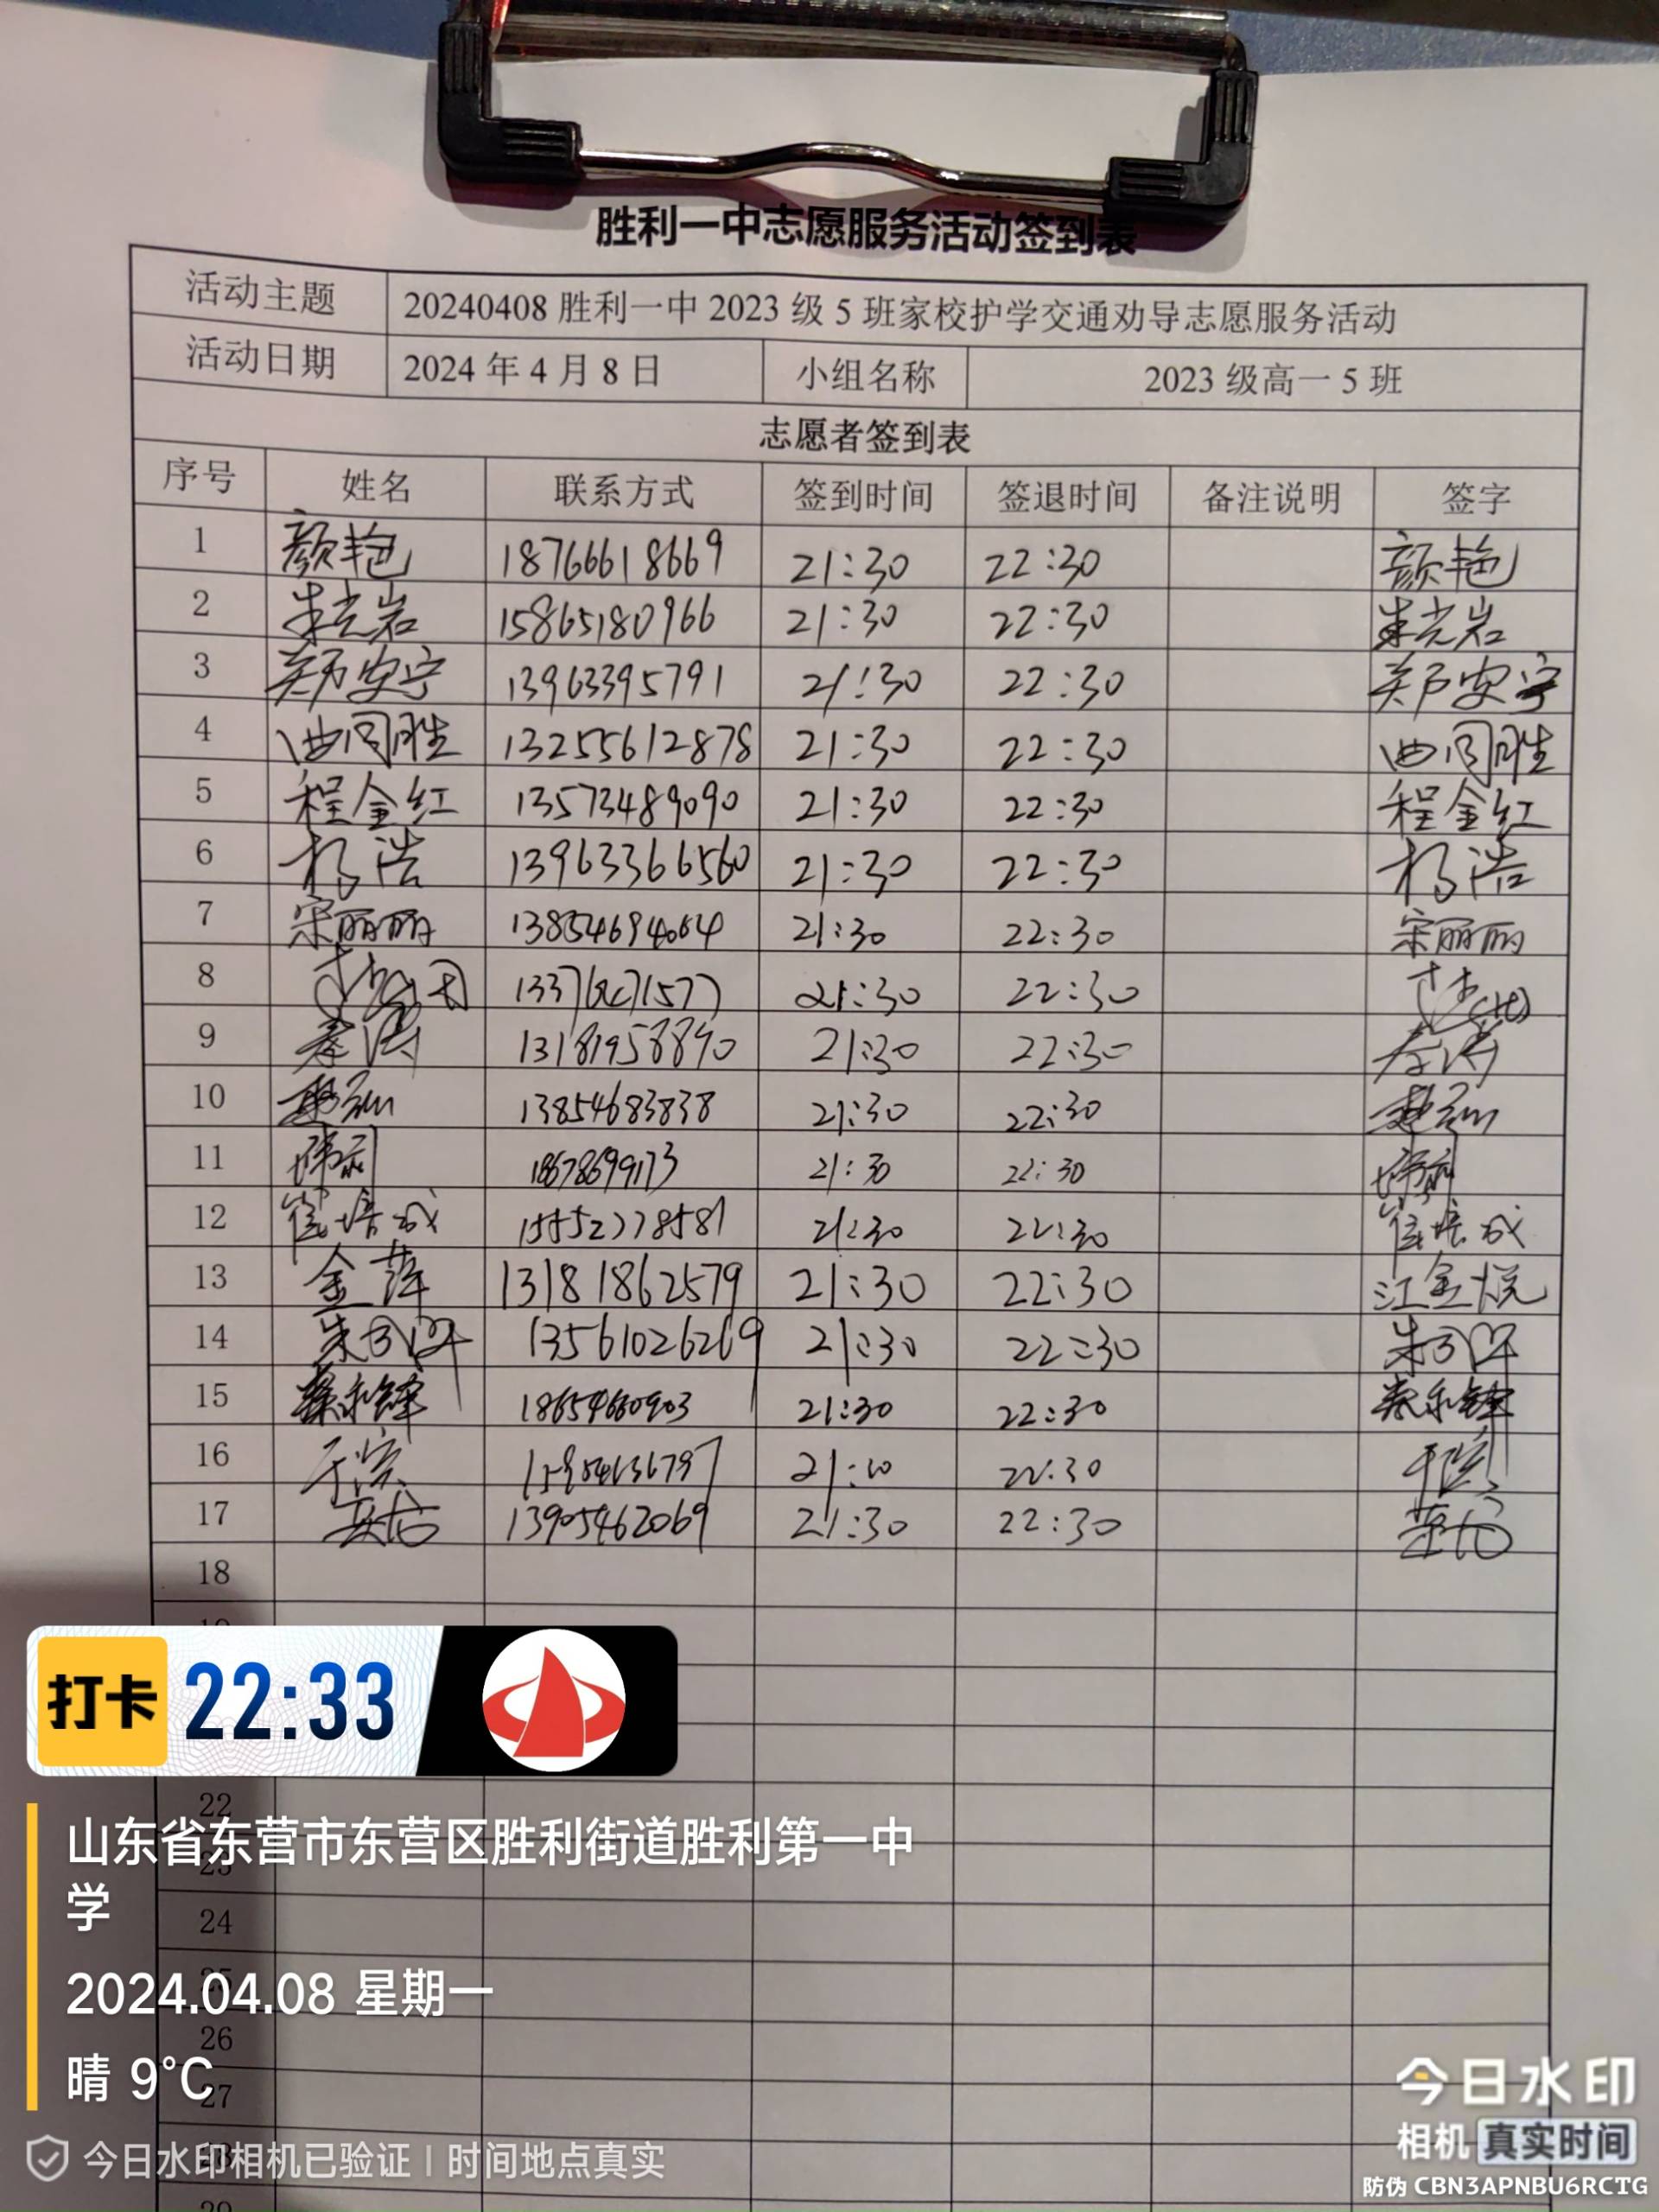 胜利一中志愿服务活动签到表
活动主题 20240408 胜利一中 2023 级 5 班家校护学交通劝导志愿服务活动
活动日期 2024 年 4 月 8 日 小组名称 2023 级高一 5 班
志愿者签到表
序号 姓名 联系方式 签到时间 签退时间 备注说明 签字
1 颜艳 18766618669 21:30 22:30 颜艳
2 朱光岩 15865180966 21:30 22:30 朱光岩
3 郑安宁 13963395791 21:30 22:30 郑安宁
4 曲同胜 13255612878 21:30 22:30 曲同胜
5 程金红 13573489090 21:30 22:30 程金红
6 杨浩 13963366560 21:30 22:30 杨浩
7 宋丽丽 13854694064 21:30 22:30 宋丽丽
8 21:30 22:30
9 13181958890 21:30 22:30
10 13854683838 21:30 22:30
11 18678699173 21:30 22:30
12 崔培成 15552778581 21:30 22:30 崔培成
13 金萍 13181862579 21:30 22:30 江金悦
14 13561026269 21:30 22:30
15 秦利锋 18654660903 21:30 22:30 秦利锋
16 22:30
17 13905462069 21:30 22:30
18
打卡 22:33
22
山东省东营市东营区胜利街道胜利第一中
23
学
24
25
2024.04.08 星期一
26
晴 9°C
27
今日水印
相机 真实时间
28
今日水印相机已验证 | 时间地点真实
防伪 CBN3APNBU6RCTG
29